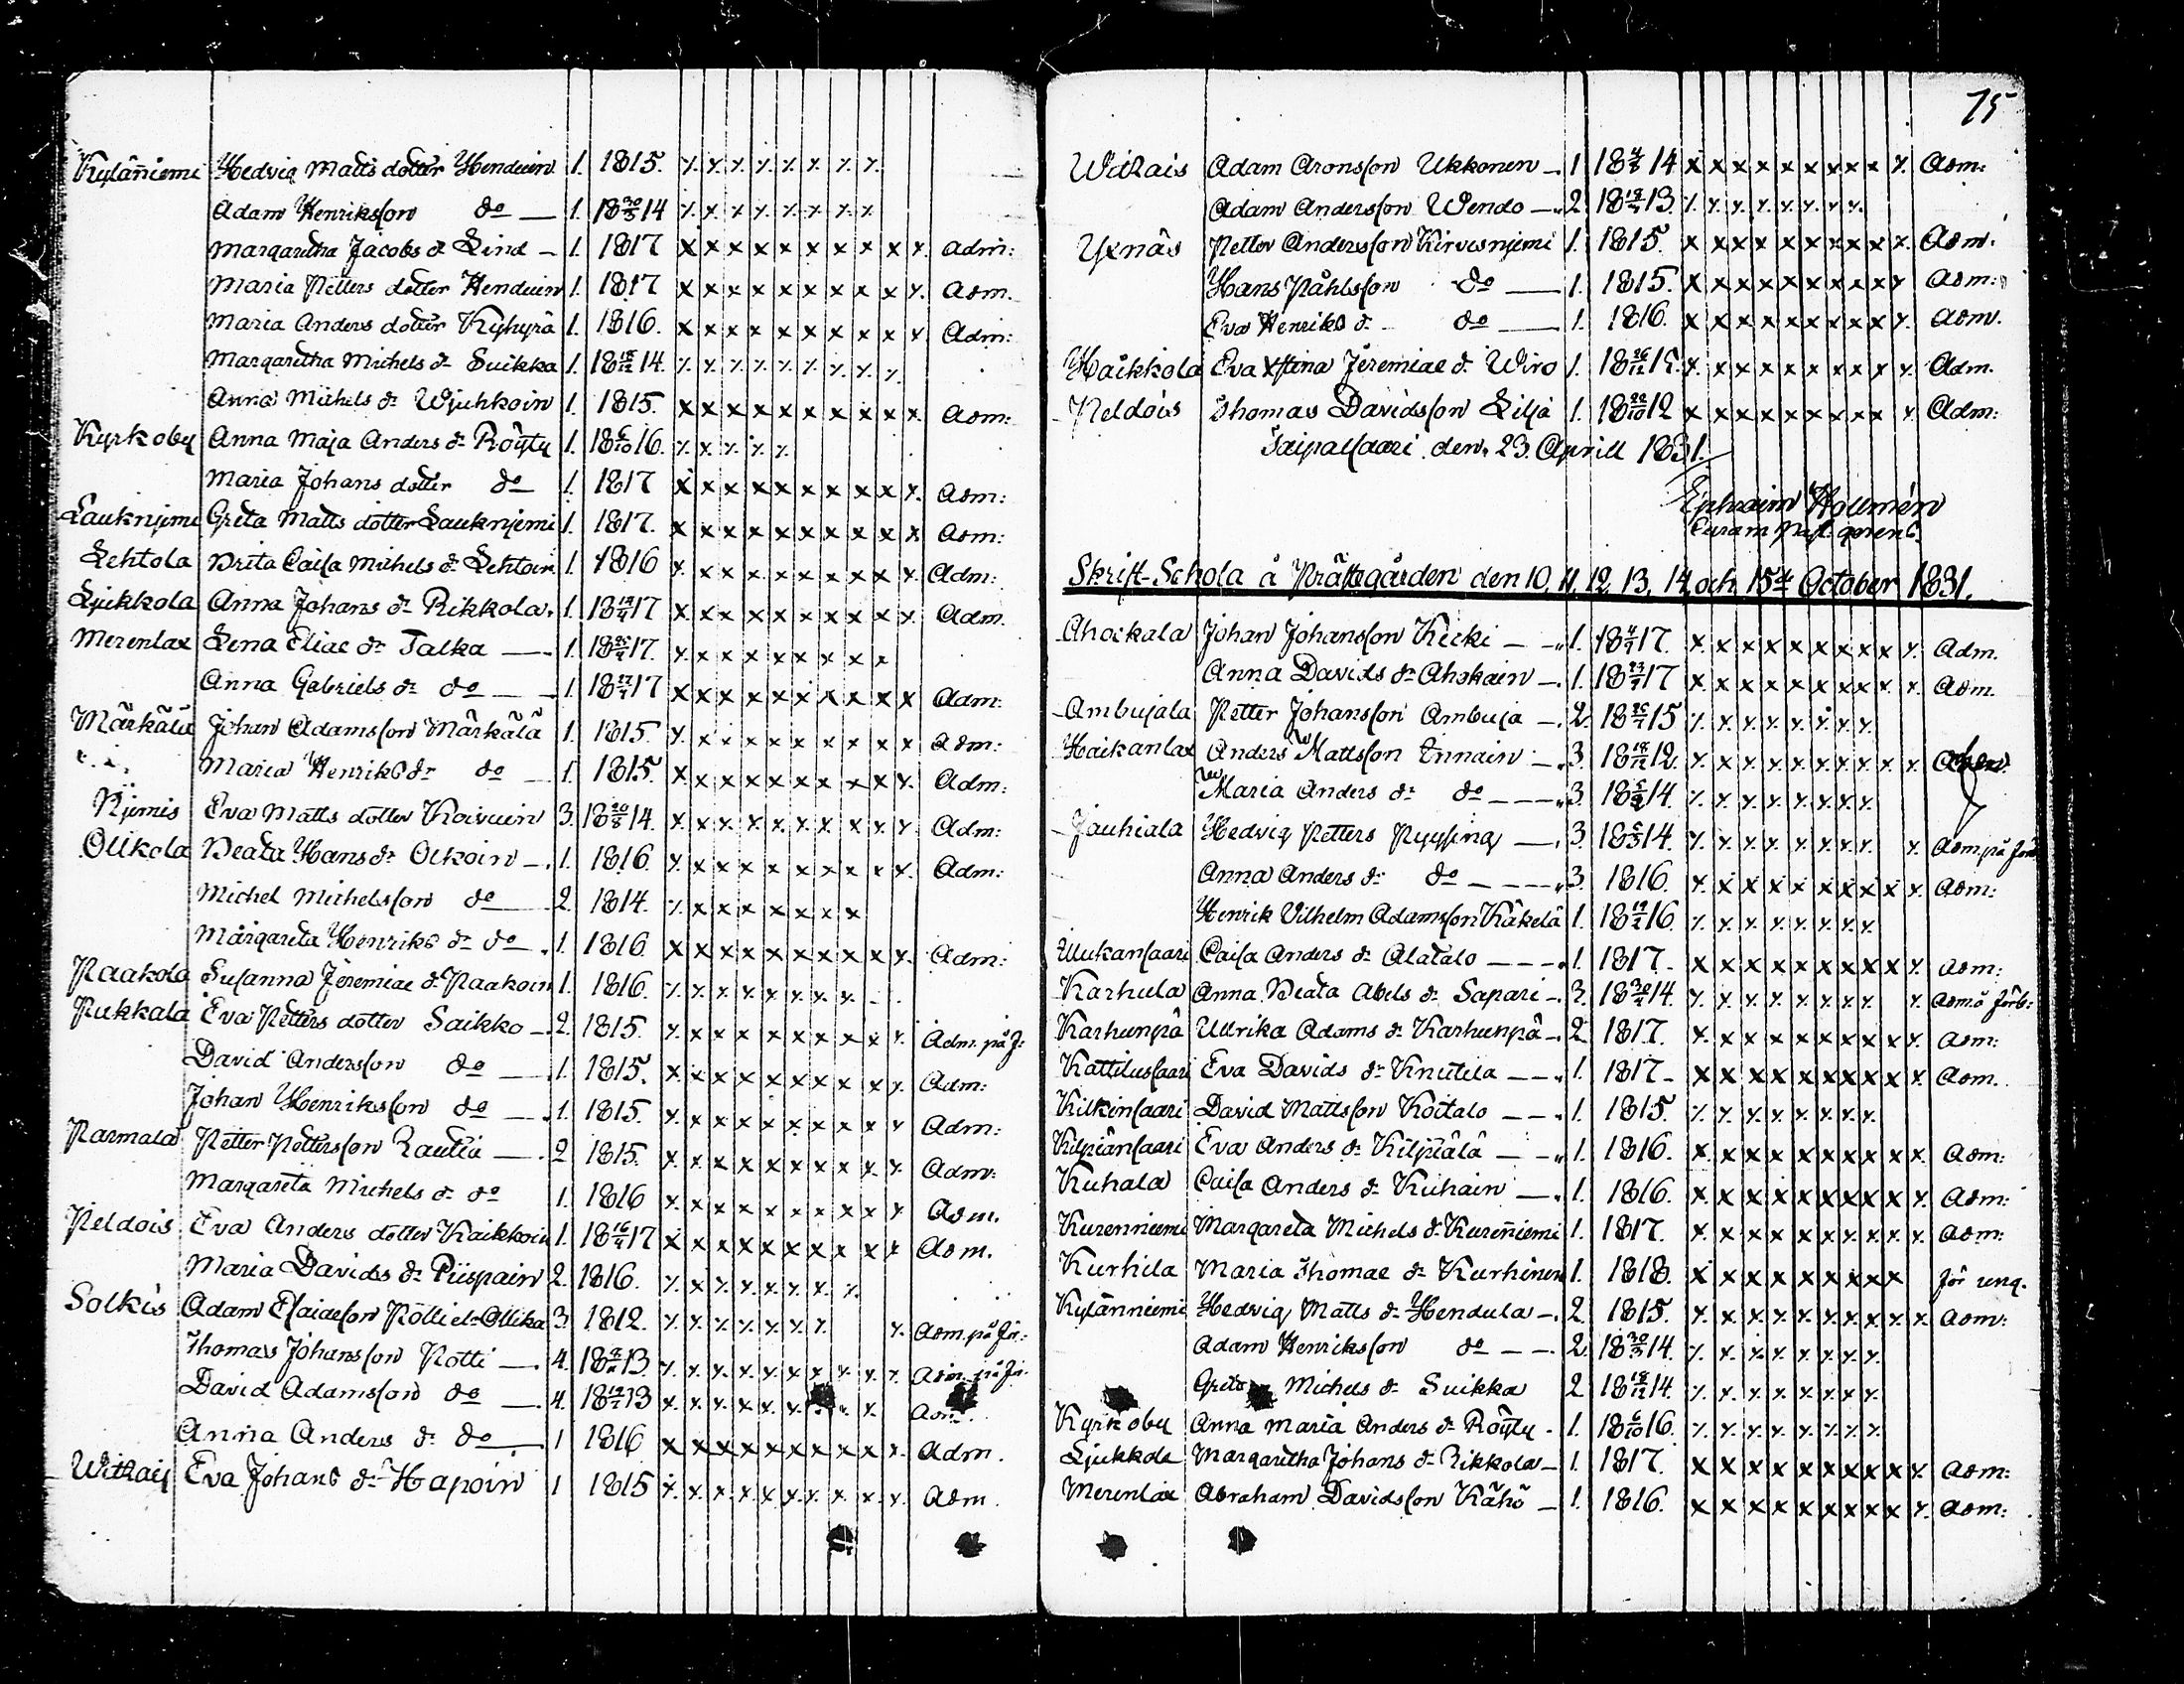 Kylänniemi Hedvig Matts dotter Henduin 1. 1815. ⁒ ⁒ ⁒ ⁒ ⁒ ⁒ ⁒ ⁒
Adam Henriksson do — 1. 18 30/5 14 ⁒ x ⁒ ⁒ ⁒ ⁒ ⁒ ⁒
Margaretha Jacobs dr Lind – 1. 1817 x x x x x x x x x ⁒ Adm:
Maria Petters dotter Henduin 1. 1817 x x x x x x x x x ⁒ Adm.
Maria Anders dotter Kyhyrä 1. 1816. x x x x x x x x x ⁒ Adm:
Margaretha Michels dr Suikka 1. 18 18/12 14. ⁒ ⁒ ⁒ ⁒ ⁒ ⁒ ⁒ ⁒ ⁒
Anna Michels dr Wjuhkoin 1. 1815. x x x x x x x x x x Adm:
Kyrkoby Anna Maja Anders dr Röyty 1. 18 6/10 16. ⁒ x ⁒ ⁒ ⁒
Maria Johans dotter do 1. 1817 x x x x x x x x x ⁒ Adm:
Lauknjemi Greta Matts dotter Lauknjemi 1. 1817. x x x x x x x x x x Adm:
Lehtola Brita Caisa Michels dr Lehtoin 1. 1816 ⁒ x x x x x x x x ⁒ Adm:
Ljukkola Anna Johans dr Rikkola. 1. 1817 x x x x x x x x x ⁒ Adm.
Merenlax Lena Eliae dr Talka — 1. 1817. ⁒ x x x x x x x x
Anna Gabriels dr do — 1. 1817 x x x x x x x x x x Adm:
Märkälä Johan Adamsson Märkälä 1. 1815. ⁒ x x x x x x x x x Adm:
Maria Henriks dr do — 1. 1815. x x x x x x x x x ⁒ Adm:
Pjemis Eva Matts dotter Koivuin 3. 18 20/8 14. x x x x x x x x x ⁒ Adm:
Ollkola Beata Hans dr Olkoin — 1. 1816. ⁒ x x x x x x x x ⁒ Adm:
Michel Michelsson do — 2. 1814. ⁒ x x x x x x x
Margareta Henriks dr do 1. 1816. x x x x x x x x x ⁒ Adm:
Paakola Susanna Jeremiae dr Paakoin 1. 1816. ⁒ ⁒ ⁒ ⁒ ⁒ ⁒ ⁒ ⁒
Pukkala Eva Petters dotter Saikko — 2. 1815. ⁒ x x x x x x x x ⁒ Adm. på J:
David Andersson do — 1. 1815. x x x x x x x x x ⁒ Adm:
Johan Henriksson do — 1. 1815. ⁒ x x x x x x x x ⁒ Adm:
Parmala Petter Pettersson Rautia — 2 1815. x x x x x x x x x ⁒ Adm:
Margareta Michels dr do 1. 1816 x x x x x x x x x ⁒ Adm.
Peldois Eva Anders dotter Kaikkoin 1. 18 16/4 17 x x x x x x x x x x Adm.
Maria Davids dr Piispain 2. 1816. ⁒ x ⁒ ⁒ ⁒ ⁒ ⁒ ⁒
Solkis Adam Esaiesson 3. 1812. ⁒ ⁒ ⁒ ⁒ ⁒ ⁒ ⁒ ⁒ Adm. på för:
Thomas Johansson Pötti — 4. 1813. ⁒ ⁒ ⁒ ⁒ ⁒ ⁒ x ⁒ ⁒ ⁒ Adm. på för
David Adamsson do — 4. 1813 x x x x x x ⁒ Adm.
Anna Anders dr do — 1 1816 x x x x x x x x x ⁒ Adm.
Witsais Eva Johans dr Hapoin 1 1815 ⁒ x x x x x x x x ⁒ Adm.
75
Witsais Adam Aronsson Ukkonen — 1 1814 x x x x x x x x ⁒ Adm:
Adam Andersson Wendo — 2 1813. ⁒ ⁒ ⁒ ⁒ ⁒ ⁒ ⁒ ⁒
Yxnäs Petter Andersson Kirvesnjemi 1. 1815. x x x x x x x x x ⁒ Adm.
Hans Påhlsson do — 1. 1815. x x x x x x x x x ⁒ Adm:
Eva Henriks dr do — 1. 1816. x x x x x x x x x ⁒ Adm.
Haikkola Eva Xstina Jeremiae dr Wiro 1. ⁒ x x x x x x x x ⁒ Adm.
Peldois Thomas Davidsson Lilja 1. 18 29/10 12 x x x x x x x x x ⁒ Adm:
Taipalsaari den 23. Aprill 1831.
Ephraim Hollmén
Curam Past. gerens.
Skrift-Schola å Prästegården den 10, 11, 12, 13, 14 och 15de October 1831.
Ahockala Johan Johansson Kecki — 1. 1817. x x x x x x x x x ⁒ Adm.
Anna Davids dr Ahokain — 1. 18 23/7 17 x x x x x x x x x ⁒ Adm.
Ambujala Petter Johansson Ambuja — 2. 1815 ⁒ ⁒ ⁒ ⁒ ⁒ ⁒ ⁒ ⁒
Haikanlax Anders Mattsson Innain — 3. 18 18/12 12. ⁒ x x x x x x x x ⁒
Maria Anders dr do — 3. 1814. ⁒ ⁒ ⁒ ⁒ ⁒ ⁒ ⁒ ⁒
Jauhiala Hedvig Petters Pyyssing — 3. 1814. ⁒ ⁒ ⁒ ⁒ ⁒ ⁒ ⁒ ⁒ ⁒ Adm. på förb
Anna Anders dr do — 3. 1816. ⁒ x x x x x x x x ⁒ Adm:
Henrik Vilhelm Adamsson Käkelä 1. 1816. ⁒ ⁒ ⁒ ⁒ ⁒ ⁒ ⁒ ⁒
Ullukansaari Caisa Anders dr Alatalo — 1. 1817. x x x x x x x x x ⁒ Adm:
Karhula Anna Beata Abels dr Sapari — 3. 1814. ⁒ ⁒ ⁒ ⁒ ⁒ ⁒ ⁒ ⁒ ⁒ Adm. å förb:
Karhunpä Ullrika Adams dr Karhunpä — 2 1817. x x x x x x x x x ⁒ Adm:
Kattilussaari Eva Davids dr Knutila — 1. 1817 – x x x x x x x x x x Adm.
Kilkinsaari David Mattsson Koitalo — 1. 1815. ⁒ ⁒ ⁒ ⁒ ⁒ ⁒ ⁒ ⁒
Kilpiänsaari Eva Anders dr Kilpiälä — 1. 1816. x x x x x x x x x x Adm:
Kuhala Caisa Anders dr Kuhain — 1. 1816. x x x x x x x x x ⁒ Adm:
Kurenniemi Margareta Michels dr Kureniemi 1. 1817. x x x x x x x x x ⁒ Adm:
Kurhila Maria Thomae dr Kurhinen 1. 1818. x x x x x x x x x för ung.
Kylänniemi Hedvig Matts dr Hendula — 2. 1815. ⁒ x x x x x x x x x Adm:
Adam Henriksson do — 2. 18 30/5 14. ⁒ ⁒ ⁒ ⁒ ⁒ ⁒ ⁒ ⁒
Greta Michels dr Suikka 2 18 18/12 14. ⁒ ⁒ ⁒ ⁒ ⁒ ⁒ ⁒ ⁒
Kyrkoby Anna Maria Anders dr Röyty . 1. 18 6/10 16. ⁒ ⁒ ⁒ ⁒ ⁒ ⁒ ⁒ ⁒
Ljukkola Margaretha Johans dr Rikkola — 1. 1817. x x x x x x x x x ⁒ Adm:
Merenlax Abraham Davidsson Kähö — 1. 1816. x x x x x x x x x ⁒ Adm: